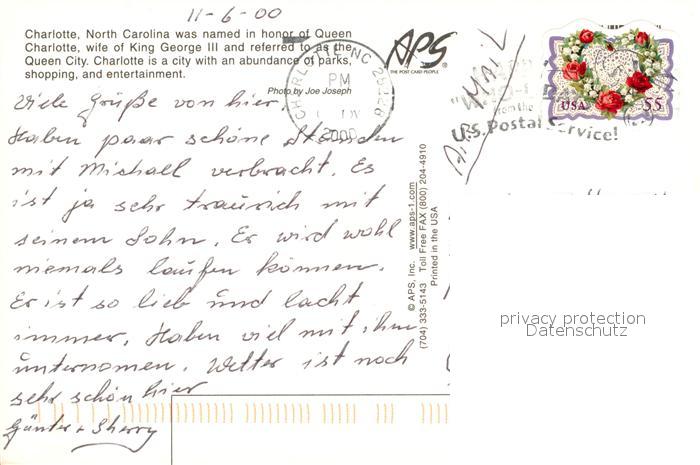 11-6-00
Charlotte, North Carolina was named in honor of Queen
Charlotte, wife of King George III and referred to as the
Queen City. Charlotte is a city with an abundance of parks,
shopping, and entertainment.
Photo by Joe Joseph
Viele Grüße von hier.
Haben paar schöne Stunden
mit Michael verbracht. Es
ist ja sehr traurich mit
seinem Sohn. Er wird wohl
niemals laufen können.
Er ist so lieb und lacht
immer. Haben viel mit ihm
unternomen. Wetter ist noch
sehr schön hier
Günter + Sherry
APS
THE POST CARD PEOPLE
CHARLOTTE NC 28228
PM
2000
© APS, Inc. www.aps-1.com
(704) 333-5143 Toll Free FAX (800) 204-4910
Printed in the USA
Air Mail
from the
U.S. Postal Service!
USA 55
privacy protection
Datenschutz